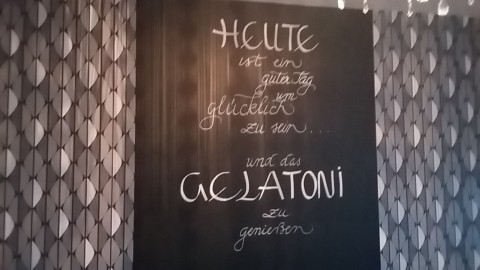 HEUTE
ist ein
guter Tag
um
glücklich
zu sein...
und das
GELATONI
zu
genießen